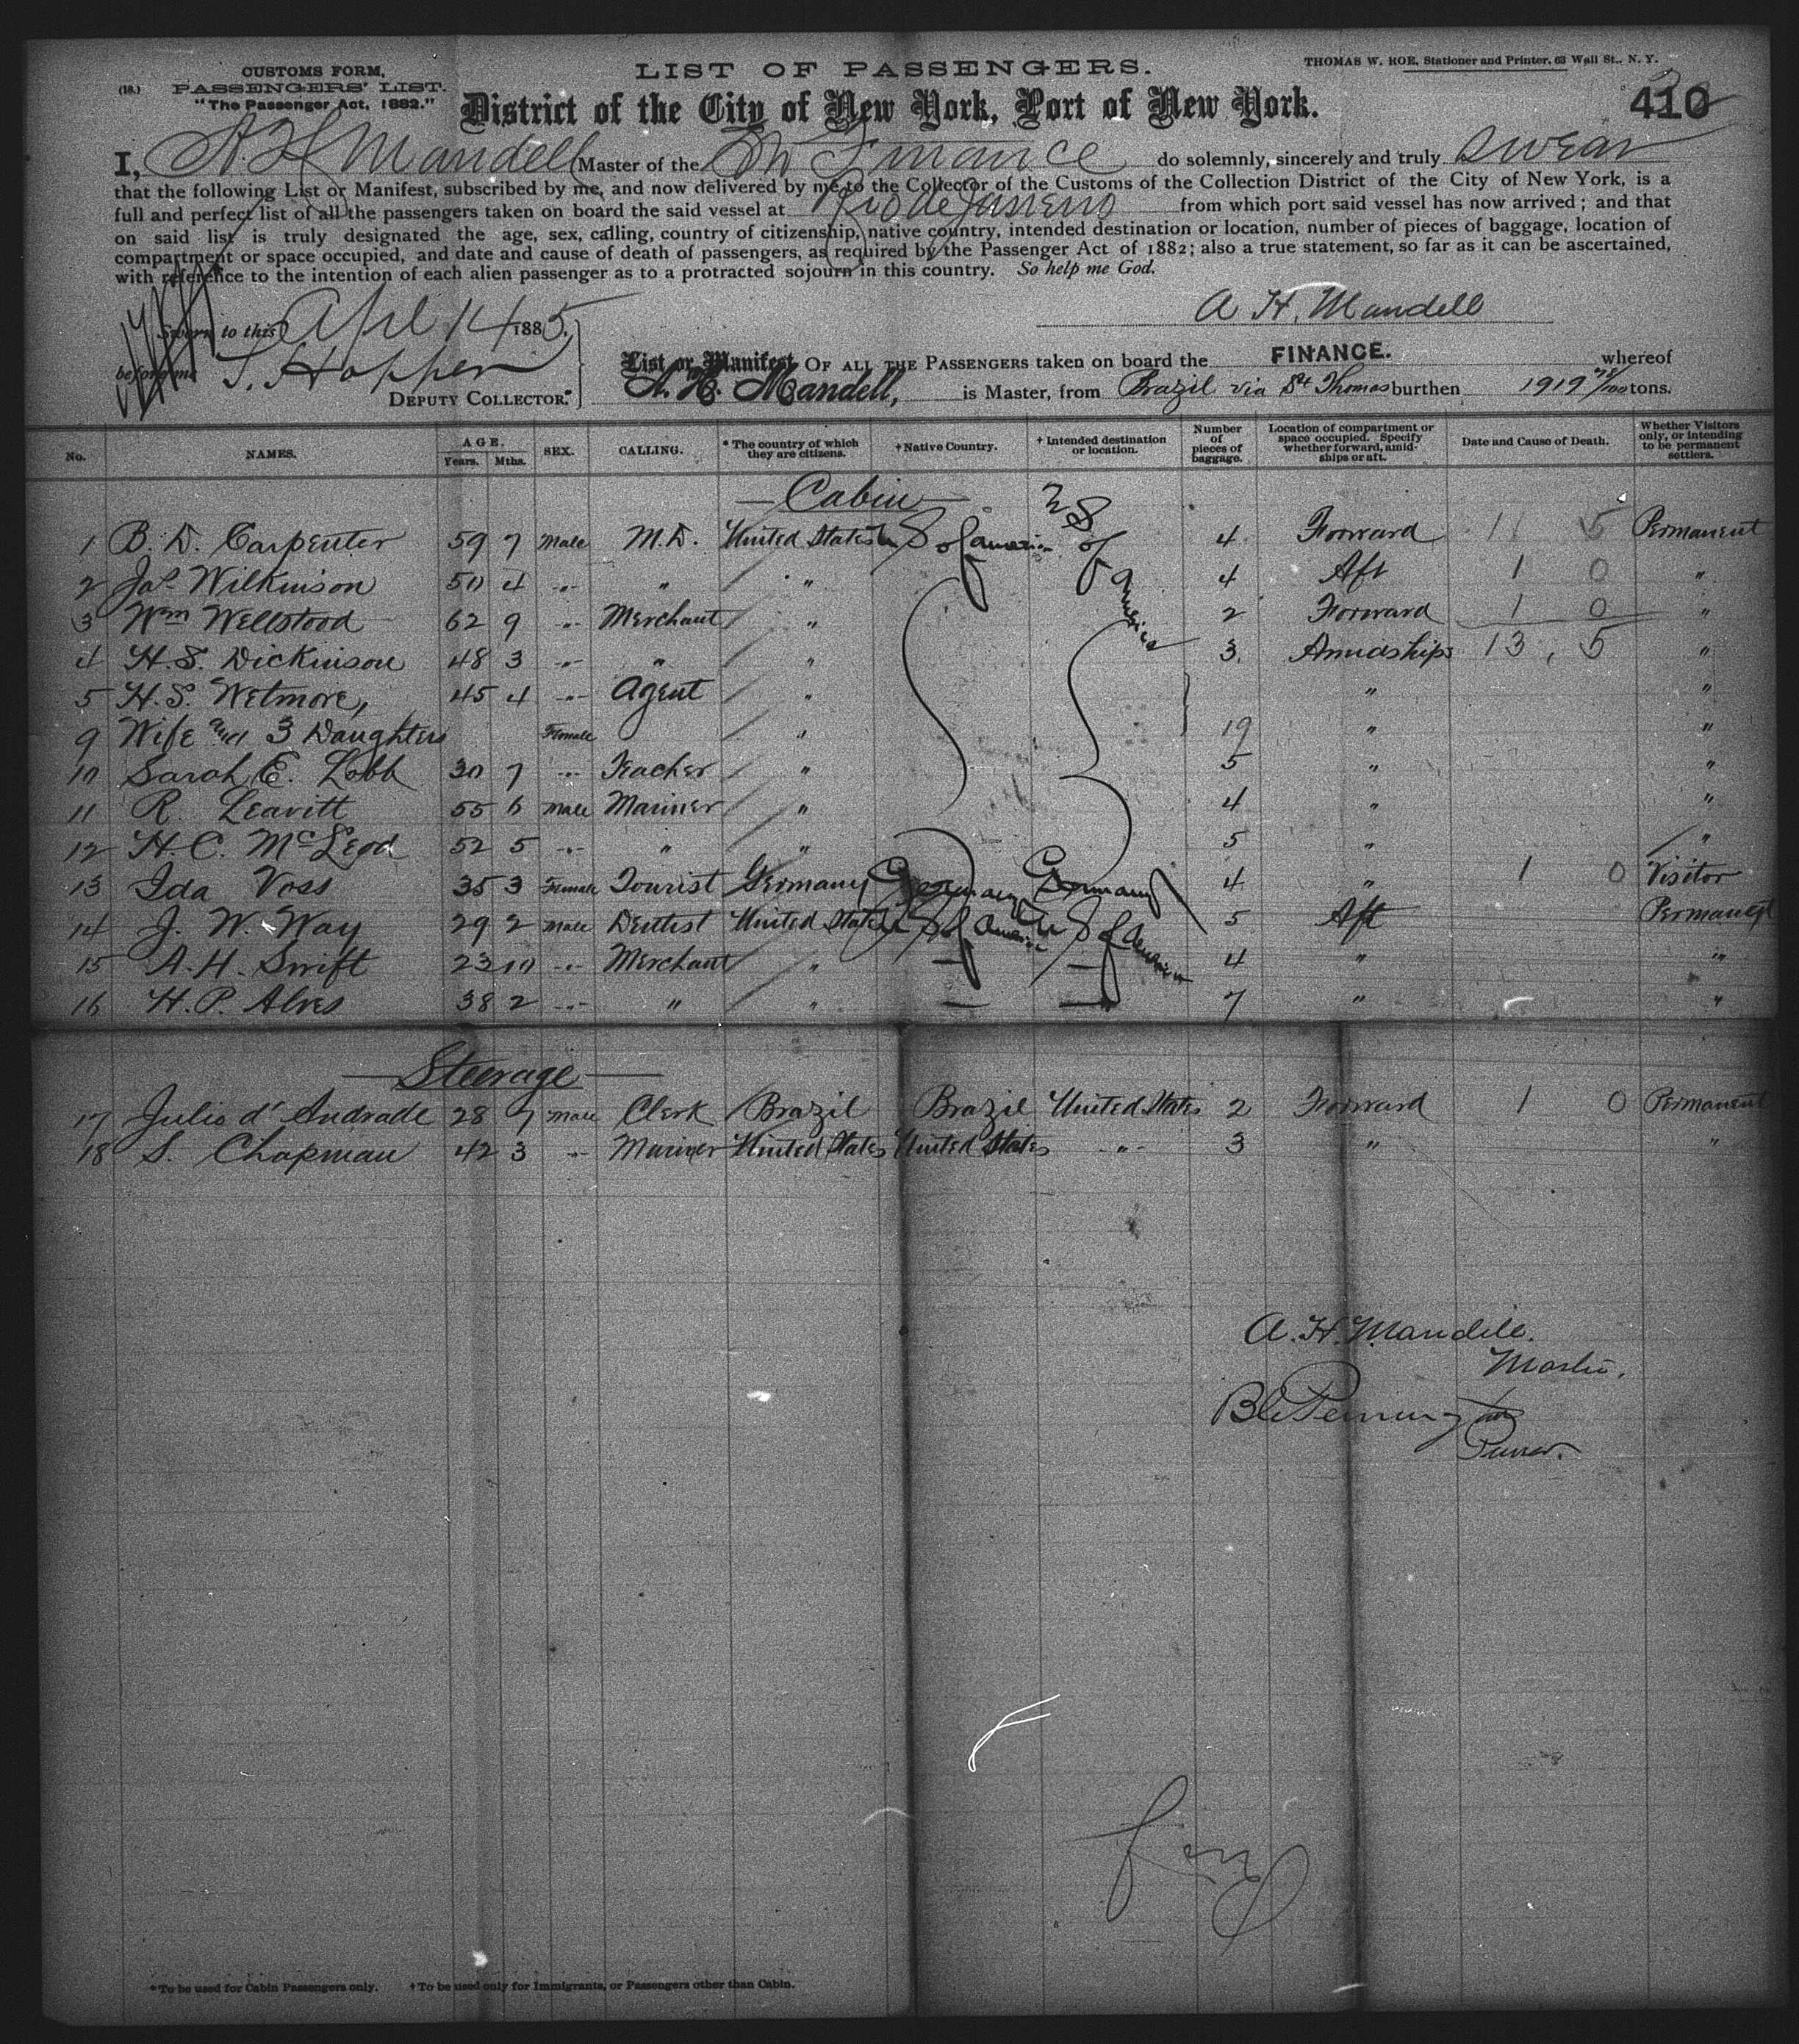 CUSTOMS FORM,
(18.) PASSENGERS' LIST.
"The Passenger Act, 1882."
LIST OF PASSENGERS.
THOMAS W. ROE, Stationer and Printer, 63 Wall St., N. Y.
District of the City of New York, Port of New York.
410
I, A H Mandell Master of the Finance do solemnly, sincerely and truly swear
that the following List or Manifest, subscribed by me, and now delivered by me to the Collector of the Customs of the Collection District of the City of New York, is a
full and perfect list of all the passengers taken on board the said vessel at Rio de Janeiro from which port said vessel has now arrived; and that
on said list is truly designated the age, sex, calling, country of citizenship, native country, intended destination or location, number of pieces of baggage, location of
compartment or space occupied, and date and cause of death of passengers, as required by the Passenger Act of 1882; also a true statement, so far as it can be ascertained,
with reference to the intention of each alien passenger as to a protracted sojourn in this country. So help me God.
A H. Mandell
Sworn to this April 14 1885.
before me T. Hopper
DEPUTY COLLECTOR.
List or Manifest OF ALL THE PASSENGERS taken on board the FINANCE. whereof
A. H. Mandell, is Master, from Brazil via St Thomas burthen 1919 78/100 tons.
No. NAMES. AGE. Years. Mths. SEX. CALLING. * The country of which they are citizens. † Native Country. † Intended destination or location. Number of pieces of baggage. Location of compartment or space occupied. Specify whether forward, amidships or aft. Date and Cause of Death. Whether Visitors only, or intending to be permanent settlers.
Cabin
1 B. D. Carpenter 59 7 Male M.D. United States U S of America U S of America 4 Forward 11 5 Permanent
2 Jas Wilkinson 50 4 " " " 4 Aft 1 0 "
3 Wm Wellstood 62 9 " Merchant " 2 Forward 1 0 "
4 H. S. Dickinson 48 3 " " " 3. Amidships 13, 5 "
5 H. S. Wetmore, 45 4 " Agent " " "
9 Wife and 3 Daughters Female " 19 " "
10 Sarah E. Lobb 30 7 " Teacher " 5 " "
11 R. Leavitt 55 6 Male Mariner " 4 " "
12 H. C. McLeod 52 5 " " " 5 " "
13 Ida Voss 35 3 Female Tourist Germany Germany Germany 4 " 1 0 Visitor
14 J. W. Way 29 2 Male Dentist United States U S of America U S of America 5 Aft Permanent
15 A. H. Swift 23 10 " Merchant " — — 4 " "
16 H. P. Alves 38 2 " " " — — 7 " "
Steerage
17 Julio d'Andrade 28 7 Male Clerk Brazil Brazil United States 2 Forward 1 0 Permanent
18 S. Chapman 42 3 " Mariner United States United States " 3 " "
A. H. Mandell.
Master.
Purser.
*To be used for Cabin Passengers only. †To be used only for Immigrants, or Passengers other than Cabin.